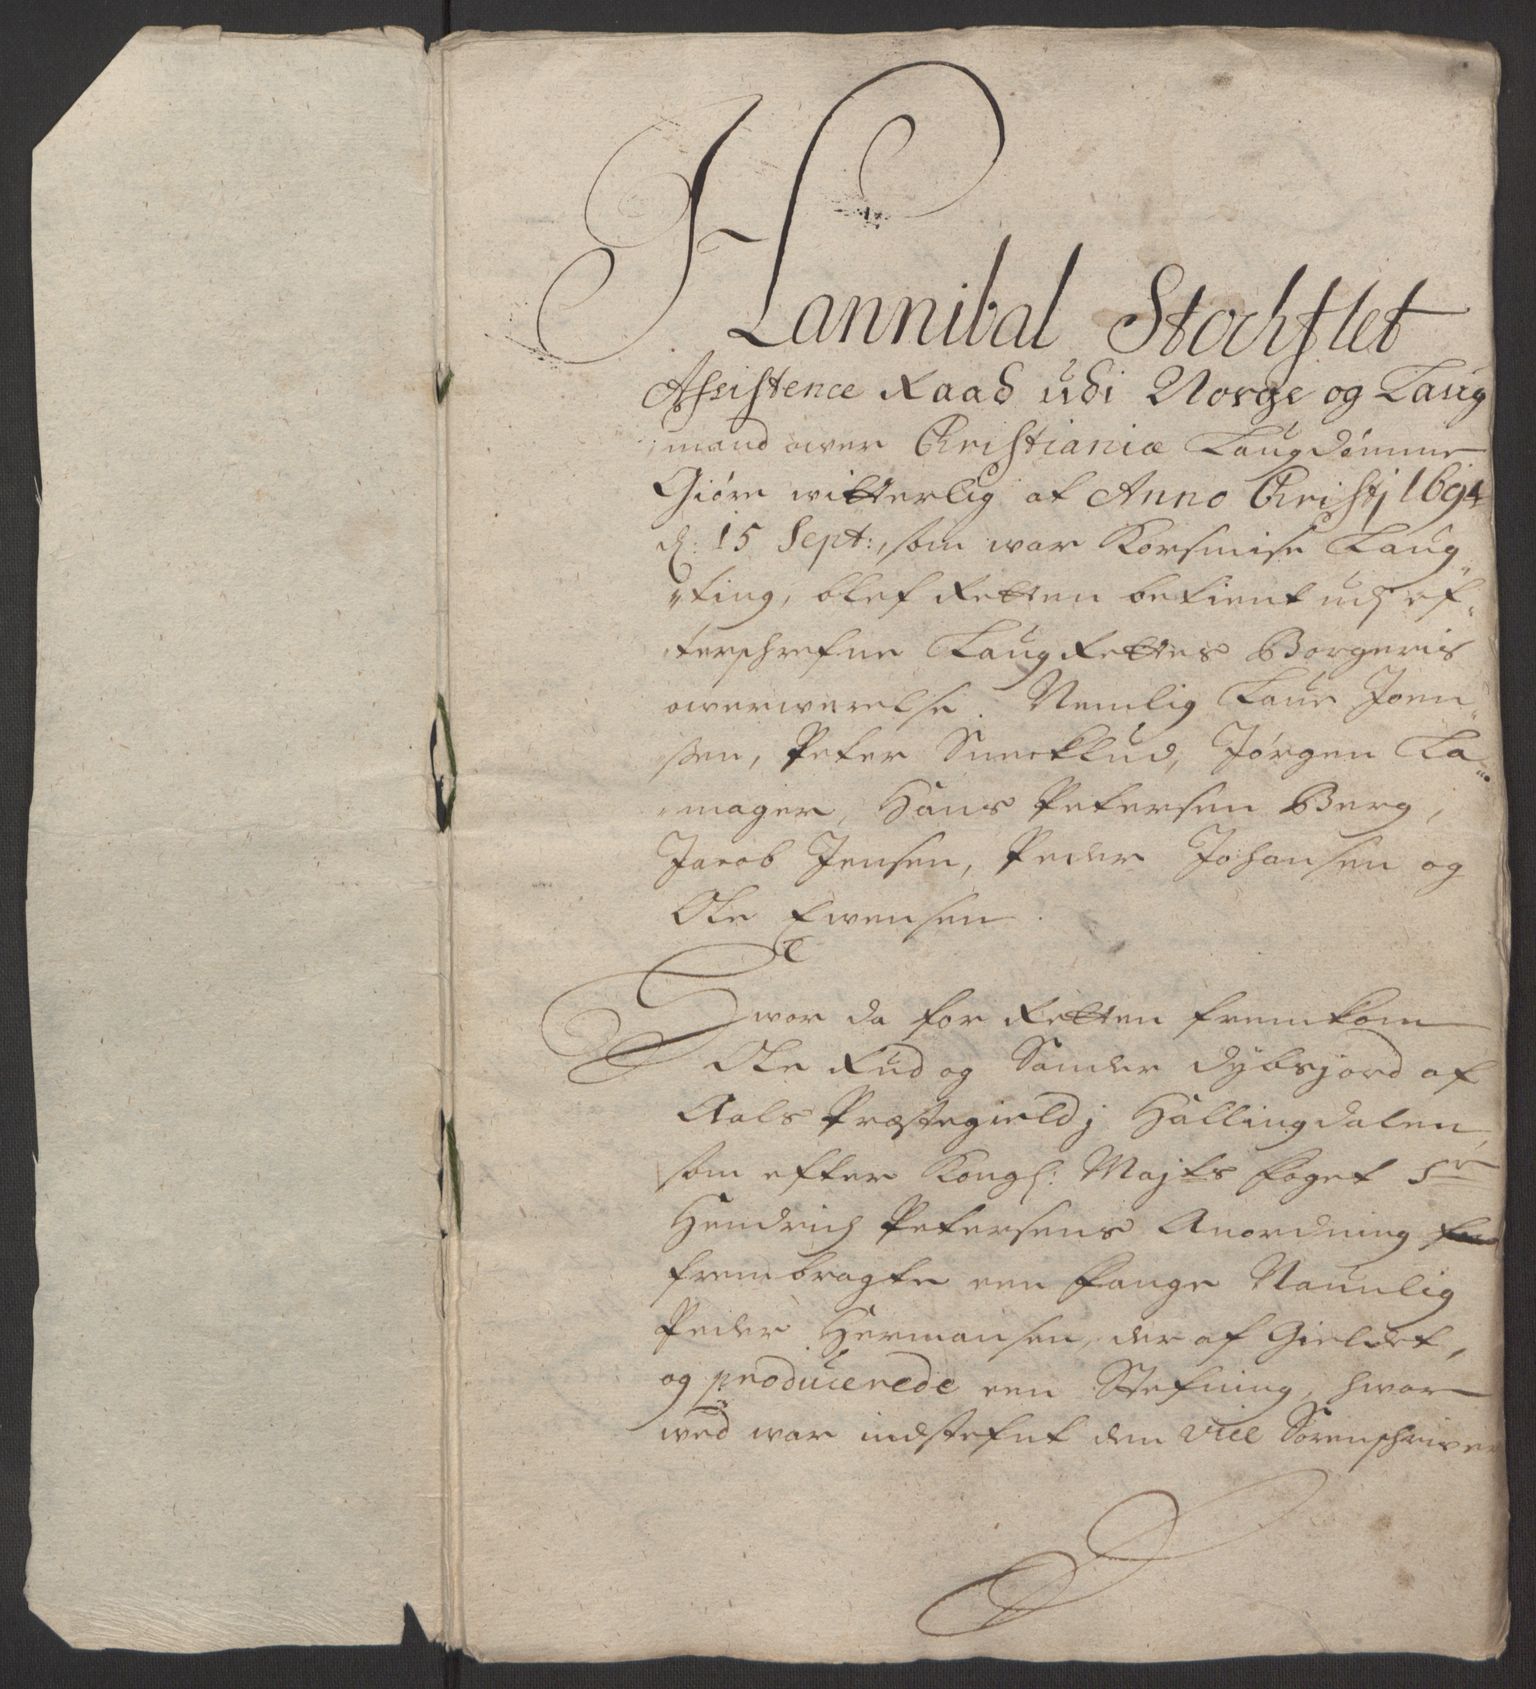 Hannibal Stochflet
Assistence Raad udi Norge og Laug
mand ower Christianiæ Laugdømme
Giøre witterlig at Anno Christj 1694
d: 15 Sept:, som war Korsmise Laug
ting, blef Retten betient udj ef„
terschrefne LaugRettes Borgeris
owerwerelse. Nemlig Laur Joen„
ssen, Peter Sneeklud, Jørgen La„
mager, Hans Petersen Berg,
Jacob Jensen, Peder Johansen og
Ole Ewensen.
Hwor da for Retten fremkom
Ole Rud og Sander Dybsjord af
Aals Præstegield j Hallingdalen,
som efter Kongl: Majts foget Sr
Hendrich Petersens Anordning
frembragte een fange Naunlig
Peder Hermansen, der af Gieldet,
og producerede een Stefning, hwor
wed war indstefnt den vice Sorenschriwer